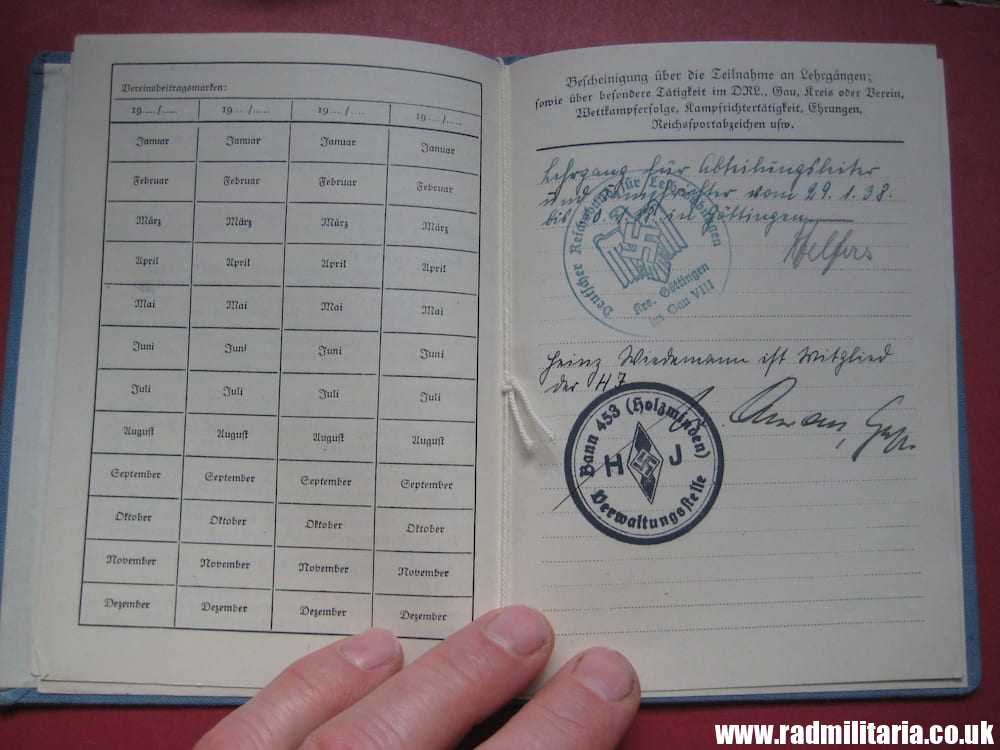 Vereinsbeitragsmarken:
19..../..... 19..../..... 19..../..... 19..../.....
Januar Januar Januar Januar
Februar Februar Februar Februar
März März März März
April April April April
Mai Mai Mai Mai
Juni Juni Juni Juni
Juli Juli Juli Juli
August August August August
September September September September
Oktober Oktober Oktober Oktober
November November November November
Dezember Dezember Dezember Dezember
Bescheinigung über die Teilnahme an Lehrgängen;
sowie über besondere Tätigkeit im DRL., Gau, Kreis oder Verein,
Wettkampferfolge, Kampfrichtertätigkeit, Ehrungen,
Reichssportabzeichen usw.
Lehrgang für Abteilungsleiter
und vom 29.1.38.
bis in Göttingen
Deutscher Reichsbund für Leibesübungen
Krs. Göttingen
im Gau VIII
Heinz Wiedemann ist Mitglied
der HJ
Bann 453 (Holzminden)
H J
Verwaltungsstelle
www.radmilitaria.co.uk